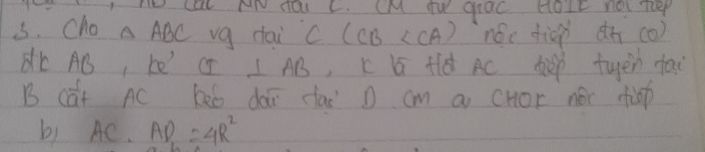 MN tại C. CM tứ giác HOIE nội tiếp
3. Cho Δ ABC vg tại C (CB < CA) nội tiếp đtr (O)
đk AB, kẻ CI ⊥ AB, K là tđ AC tiếp tuyến tại
B cắt AC kéo dài tại D CM a, CHOK nội tiếp
b) AC. AD = 4R²